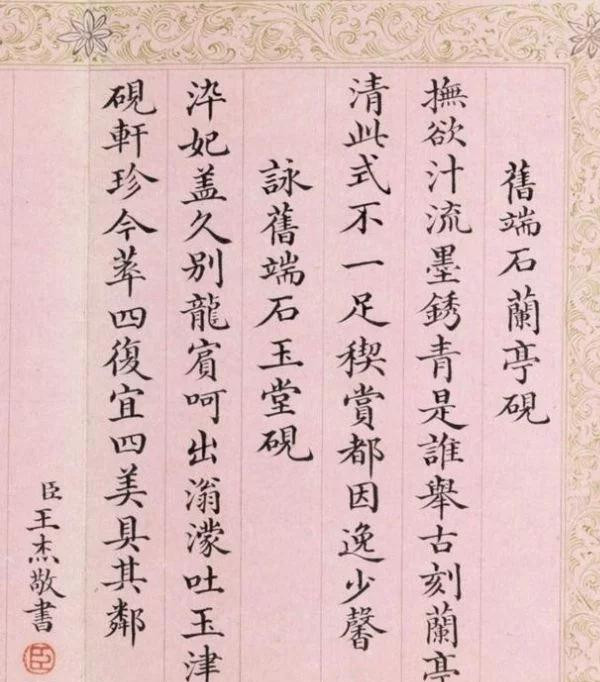 舊端石蘭亭硯
撫欲汁流墨銹青是誰舉古刻蘭亭
清此式不一足稧賞都因逸少馨
詠舊端石玉堂硯
泮妃盖久别龍賓呵出滃濛吐玉津
硯軒珍今萃四復宜四美具其鄰
臣王杰敬書
臣